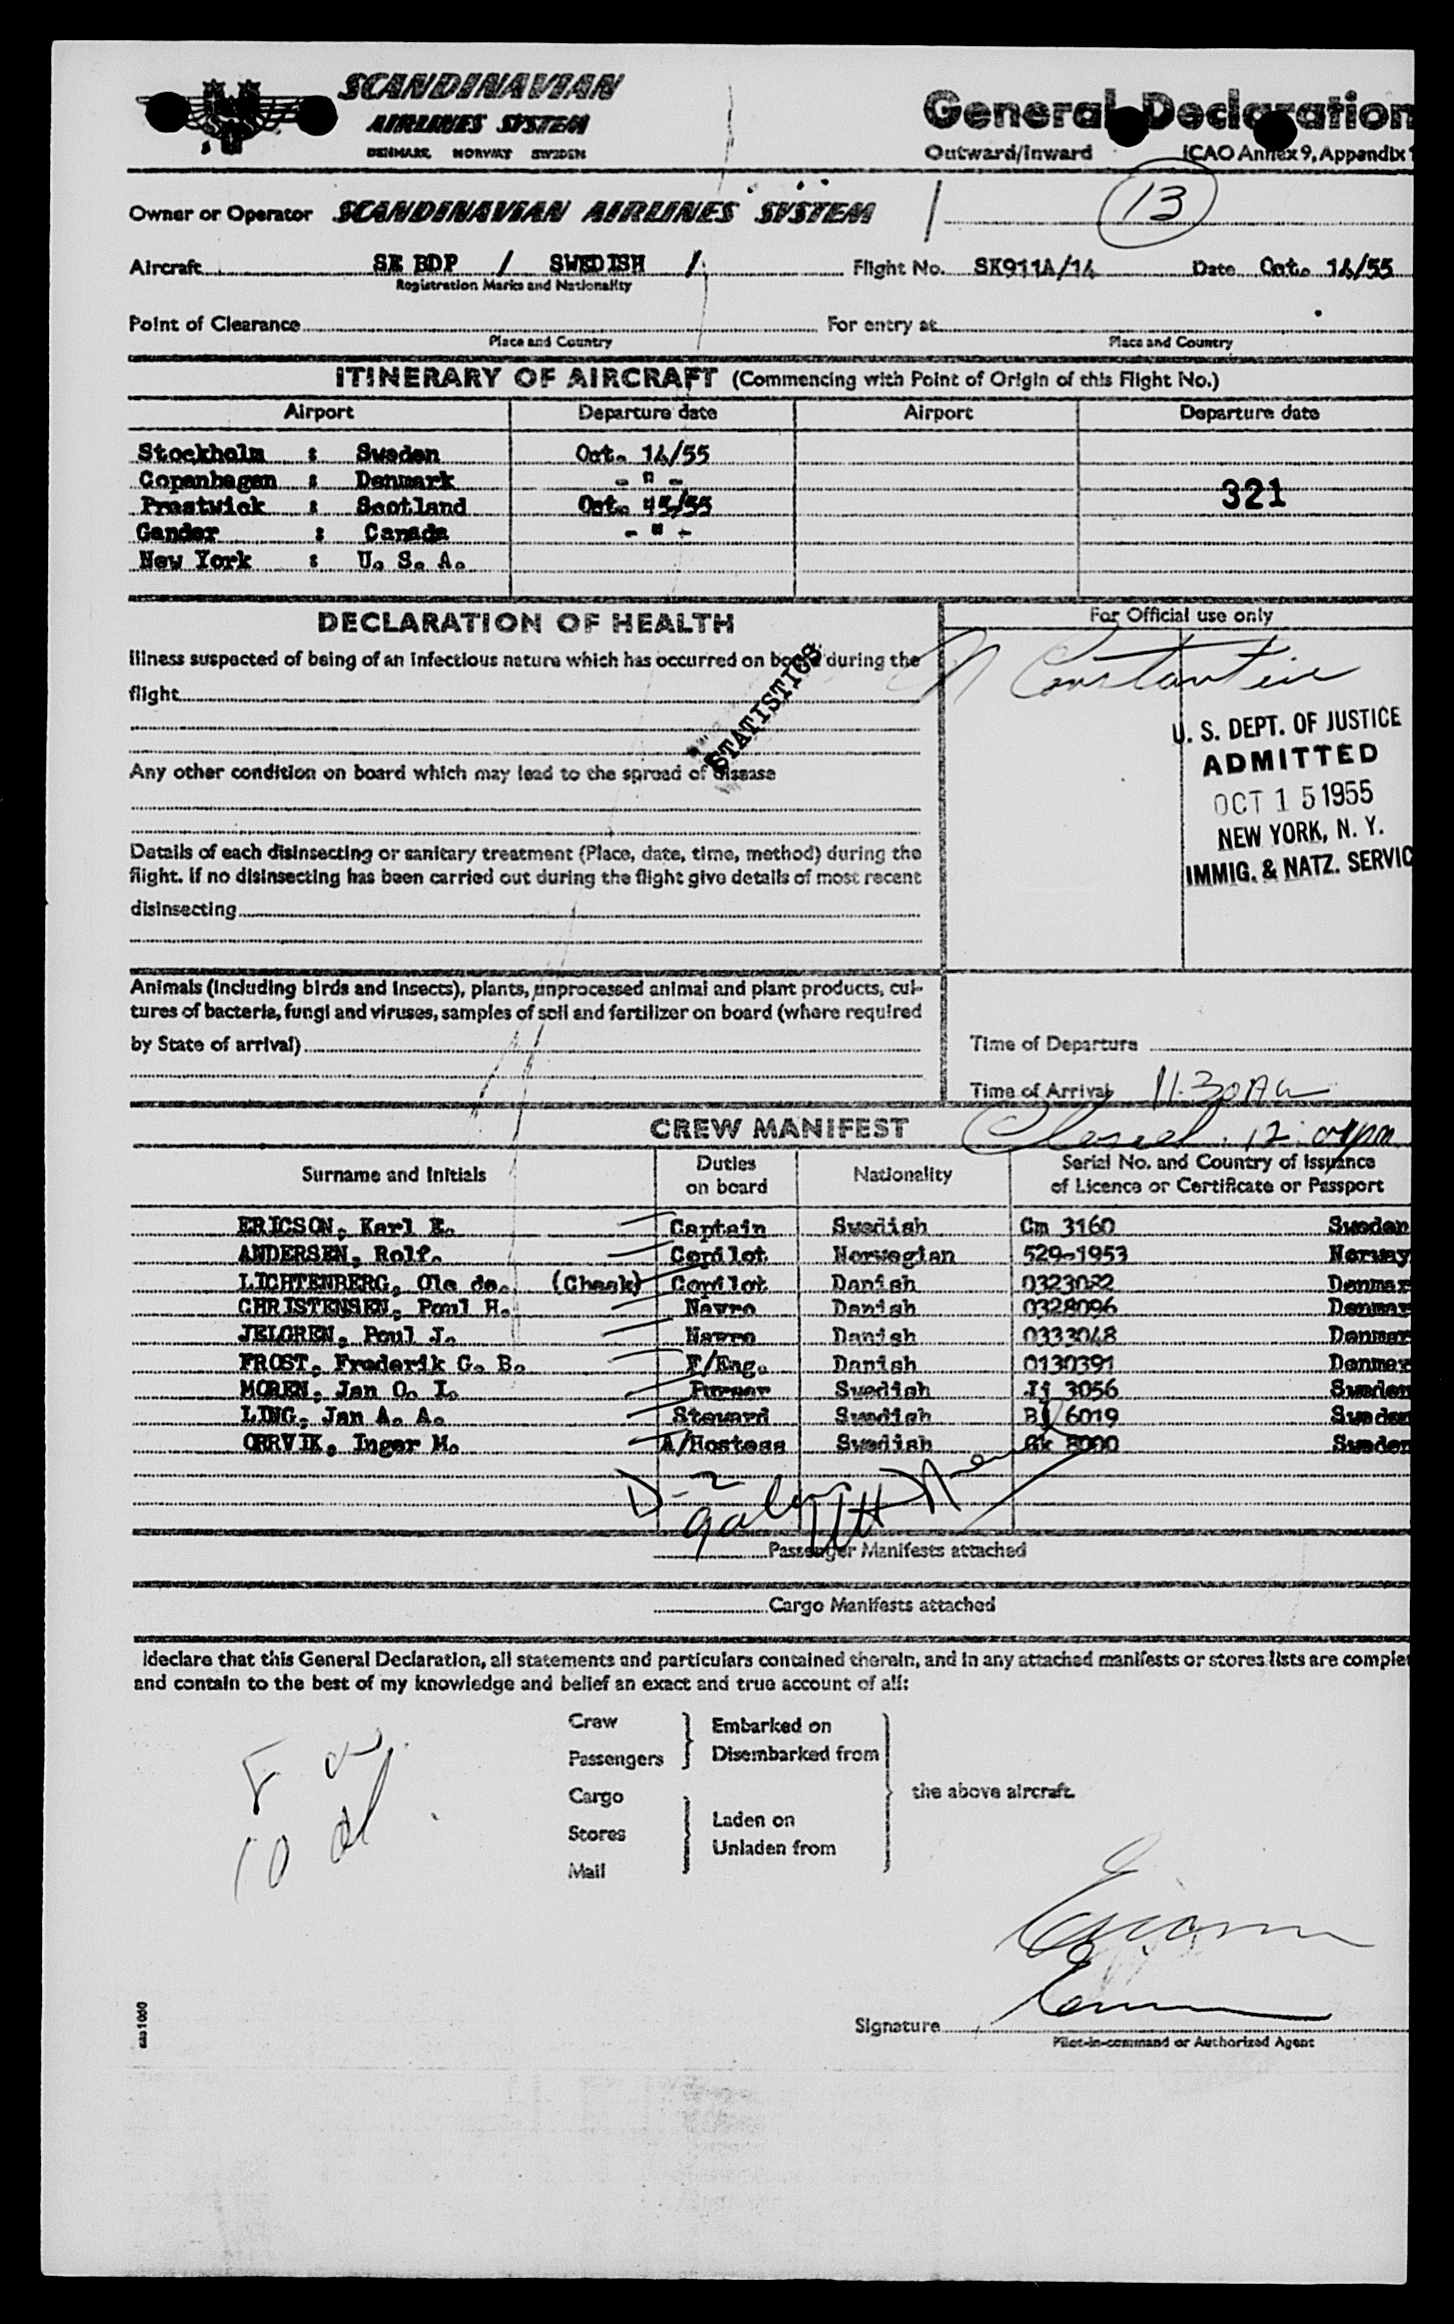 SCANDINAVIAN
AIRLINES SYSTEM
DENMARK NORWAY SWEDEN
General Declaration
Outward/Inward ICAO Annex 9, Appendix 1
13
Owner or Operator SCANDINAVIAN AIRLINES SYSTEM
Aircraft SE BDP / SWEDISH / Flight No. SK911A/14 Date Oct. 14/55
Registration Marks and Nationality
Point of Clearance For entry at
Place and Country Place and Country
ITINERARY OF AIRCRAFT (Commencing with Point of Origin of this Flight No.)
Airport Departure date Airport Departure date
Stockholm : Sweden Oct. 14/55
Copenhagen : Denmark - " -
321
Prestwick : Scotland Oct. 15/55
Gander : Canada - " -
New York : U. S. A.
DECLARATION OF HEALTH
For Official use only
Illness suspected of being of an infectious nature which has occurred on board during the
flight
STATISTICS
N Constantine
U. S. DEPT. OF JUSTICE
ADMITTED
OCT 15 1955
NEW YORK, N. Y.
IMMIG. & NATZ. SERVIC
Any other condition on board which may lead to the spread of disease
Details of each disinsecting or sanitary treatment (Place, date, time, method) during the
flight. If no disinsecting has been carried out during the flight give details of most recent
disinsecting
Animals (including birds and insects), plants, unprocessed animal and plant products, cul-
tures of bacteria, fungi and viruses, samples of soil and fertilizer on board (where required
by State of arrival)
Time of Departure
Time of Arrival 11.30 AM
Closed. 12:01 pm
CREW MANIFEST
Surname and Initials Duties on board Nationality Serial No. and Country of Issuance of Licence or Certificate or Passport
ERICSON, Karl E. Captain Swedish Cm 3160 Sweden
ANDERSEN, Rolf. Copilot Norwegian 529-1953 Norway
LICHTENBERG, Ole de. (Check) Copilot Danish 0323082 Denmar
CHRISTENSEN, Poul H. Navro Danish 0328096 Denmar
JELGREN, Poul J. Navro Danish 0333048 Denmar
FROST, Frederik G. B. F/Eng. Danish 0130391 Denmar
MOREN, Jan O. I. Purser Swedish Ij 3056 Sweden
LING, Jan A. A. Steward Swedish 6019 Sweden
ORRVIK, Inger M. A/Hostess Swedish Gk 8000 Sweden
D-2
Passenger Manifests attached
Cargo Manifests attached
I declare that this General Declaration, all statements and particulars contained therein, and in any attached manifests or stores lists are complet
and contain to the best of my knowledge and belief an exact and true account of all:
Crew
Passengers
Embarked on
Disembarked from
Cargo
Stores
Mail
Laden on
Unladen from
the above aircraft.
10
Signature
Pilot-in-command or Authorized Agent
sas 1060